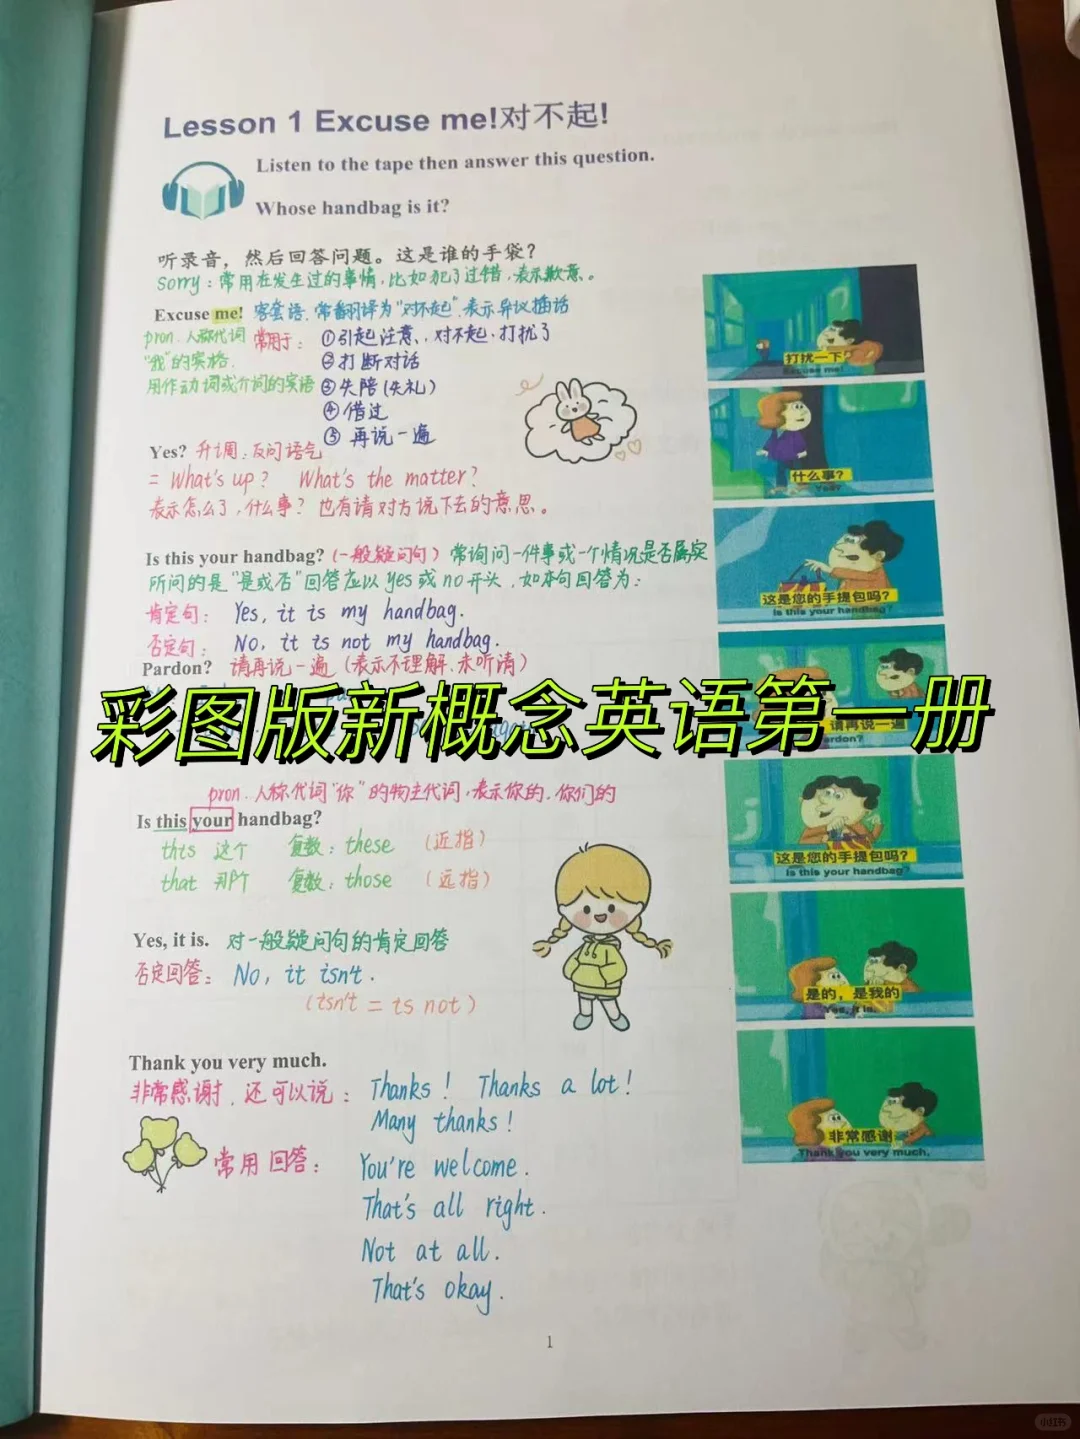 Lesson 1 Excuse me!对不起!
Listen to the tape then answer this question.
Whose handbag is it?
听录音，然后回答问题。这是谁的手袋？
Sorry：常用在发生过的事情，比如犯了过错，表示歉意。
Excuse me! 客套语，常翻译为“对不起”，表示异议插话
pron. 人称代词 常用于：①引起注意、对不起、打扰了
“我”的宾格，②打断对话
用作动词或介词的宾语 ③失陪（失礼）
④借过
⑤再说一遍
Yes? 升调：反问语气
= What's up? What's the matter?
表示怎么了，什么事？也有请对方说下去的意思。
Is this your handbag?（一般疑问句）常询问一件事或一个情况是否属实
所问的是“是或否”回答应以yes或no开头，如本句回答为：
肯定句： Yes, it is my handbag.
否定句： No, it is not my handbag.
Pardon? 请再说一遍（表示不理解、未听清）
彩图版新概念英语第一册
pron. 人称代词“你”的物主代词，表示你的，你们的
Is this your handbag?
this 这个 复数：these （近指）
that 那个 复数：those （远指）
Yes, it is. 对一般疑问句的肯定回答
否定回答： No, it isn't.
（isn't = is not）
Thank you very much.
非常感谢，还可以说： Thanks! Thanks a lot!
Many thanks!
常用回答： You're welcome.
That's all right.
Not at all.
That's okay.
打扰一下
Excuse me!
什么事？
Yes?
这是您的手提包吗？
Is this your handbag?
请再说一遍
Pardon?
这是您的手提包吗？
Is this your handbag?
是的，是我的
Yes, it is.
非常感谢
Thank you very much.
1
小红书